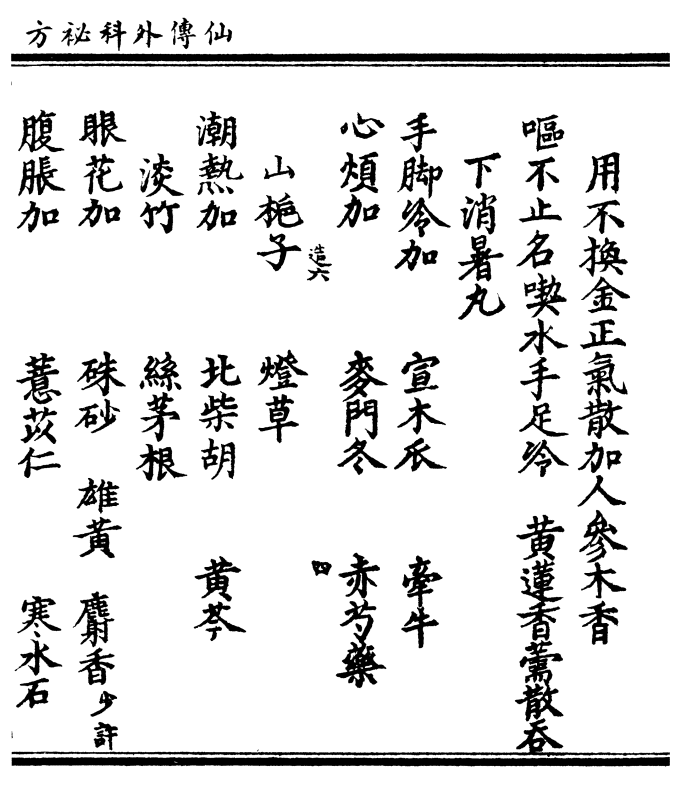 仙傳外科祕方
用不換金正氣散加人參木香
嘔不止名喫水手足冷　黄蓮香薷散吞
下消暑丸
手脚冷加　宣木瓜　牽牛
心煩加　麥門冬　赤芍藥
造六　四
山梔子　燈草
潮熱加　北柴胡　黄芩
淡竹　絲茅根
眼花加　硃砂　雄黄　麝香少許
腹脹加　薏苡仁　寒水石